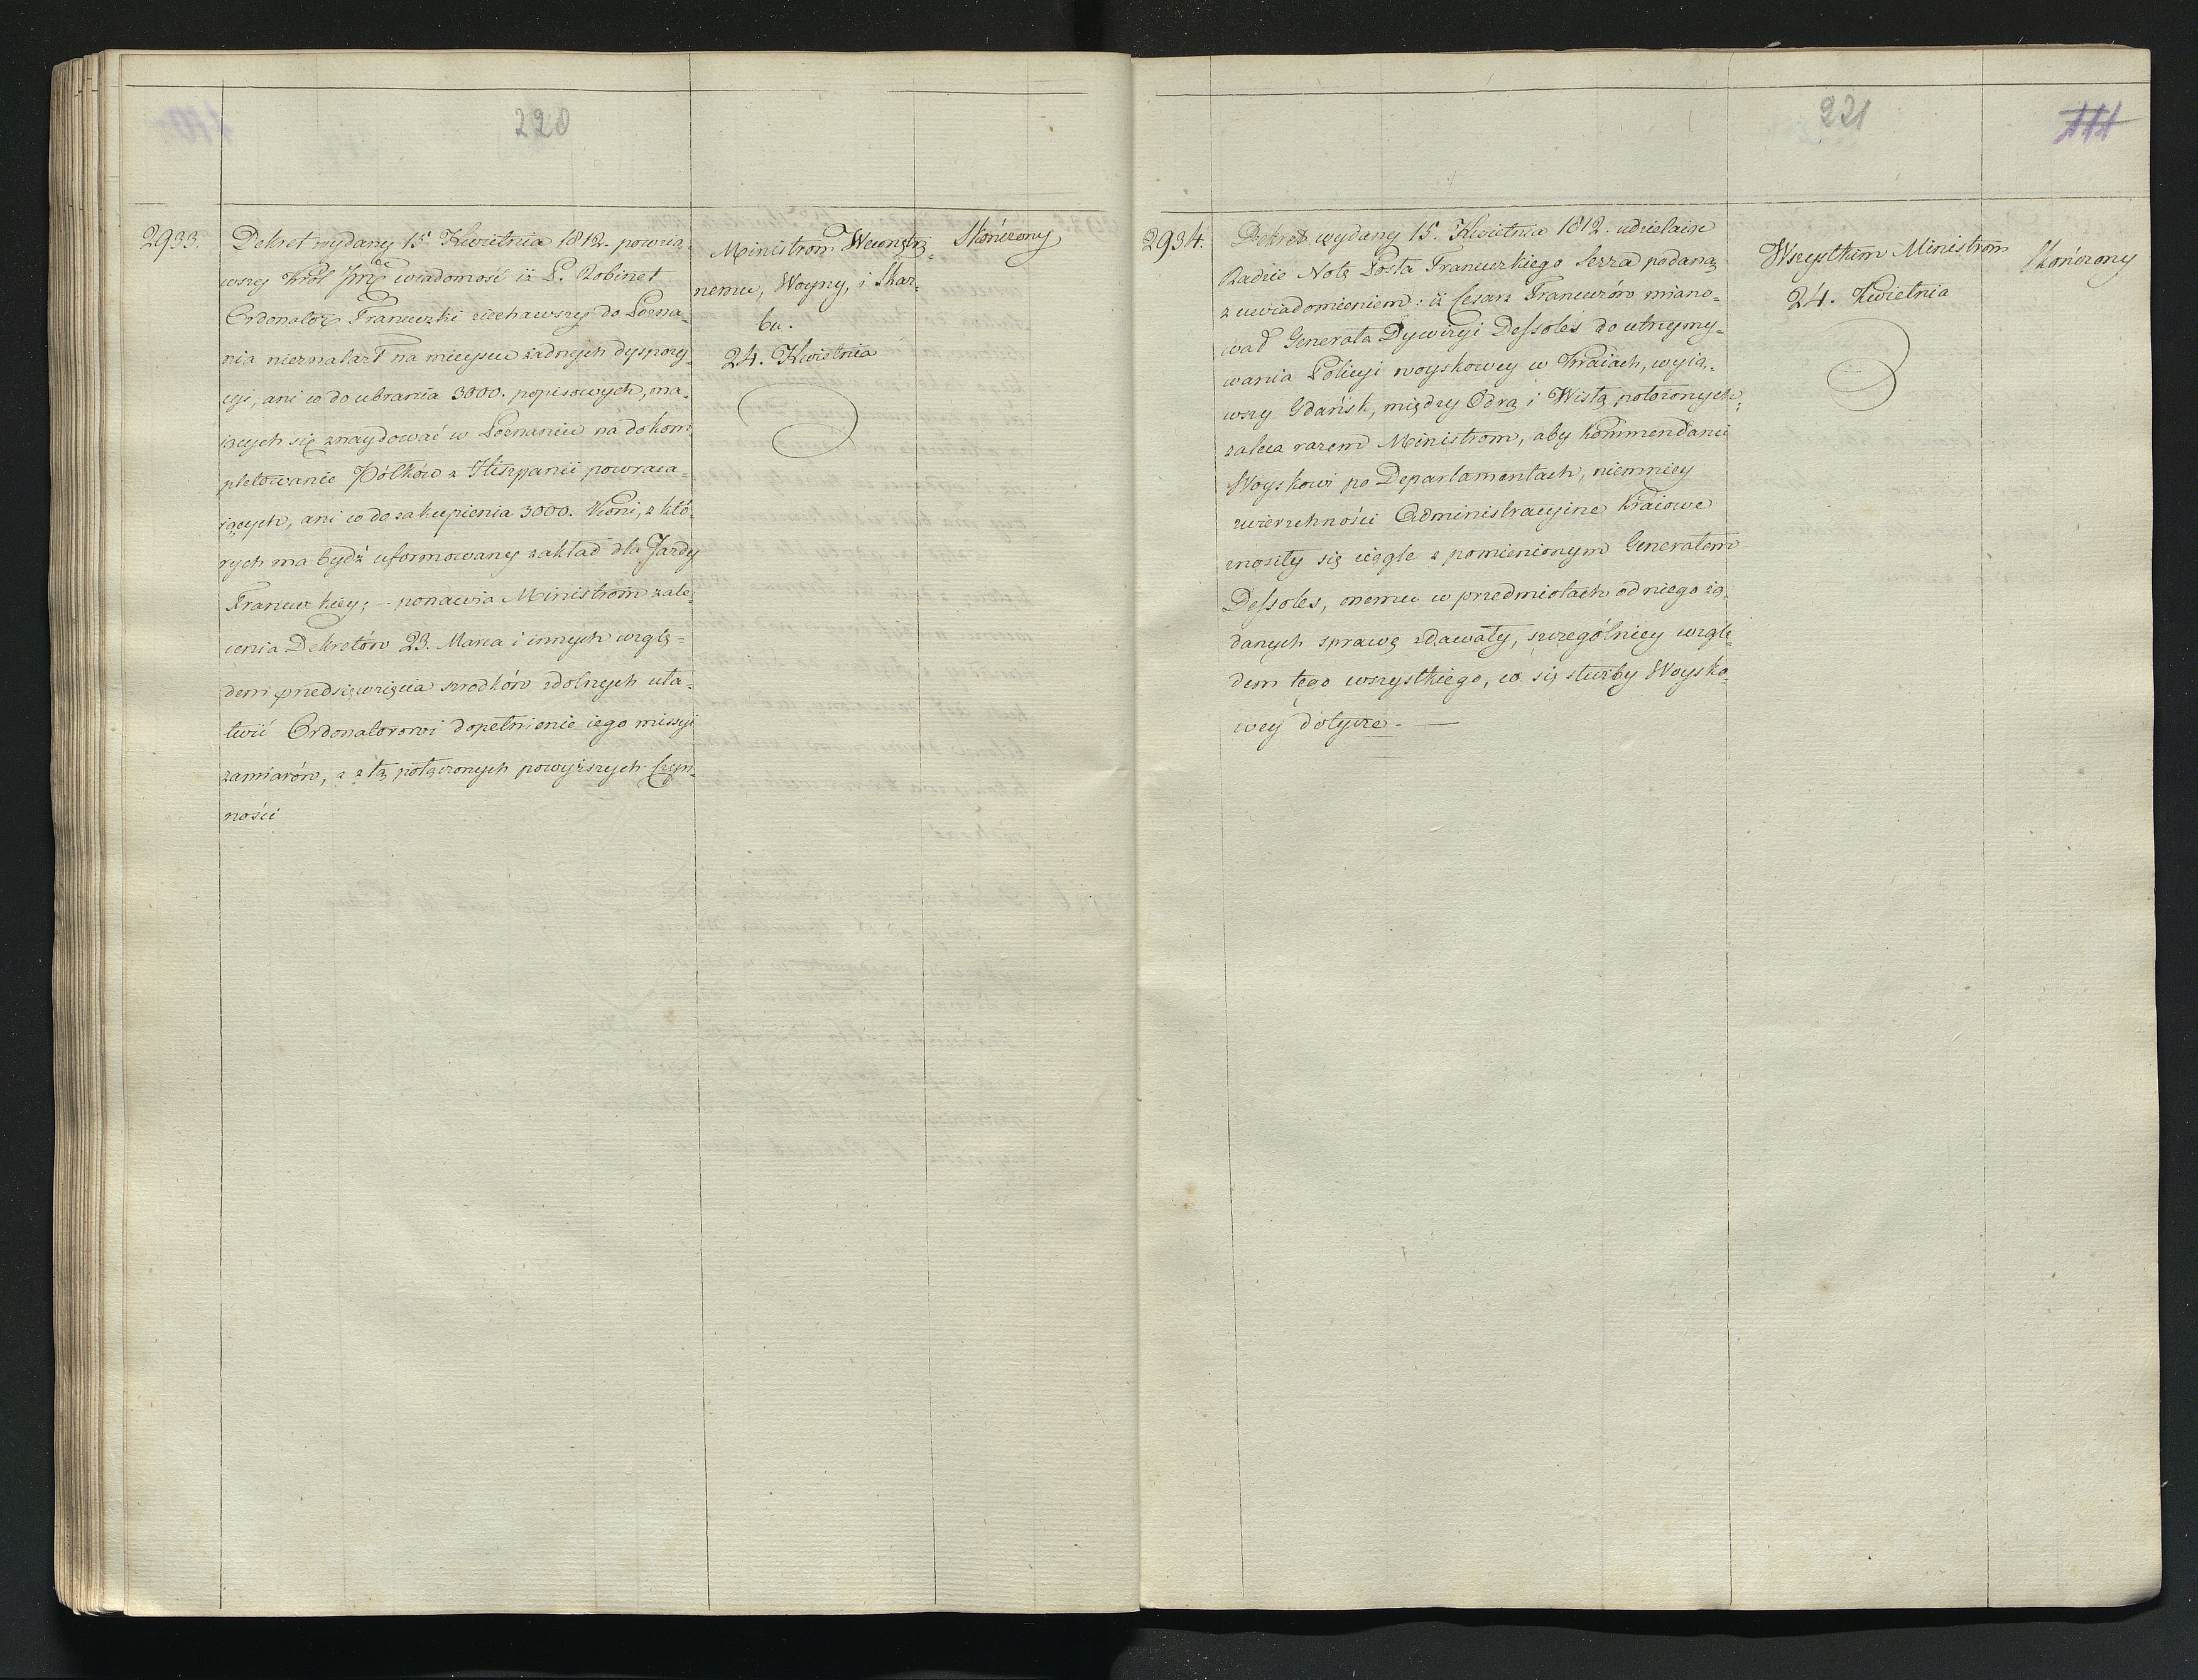 220
2933.
Dekret wydany 15 Kwietnia 1812. powzią-
wszy Król Jmć wiadomość iż P. Robinet
Ordonator Francuzki ziechawszy do Pozna-
nia nieznalazł na mieyscu żadnych dyspozy-
cyi, ani co do ubrania 3000. popisowych, ma-
iących się znaydować w Poznaniu na dokom-
pletowanie Półków z Hiszpanii powraca-
iących, ani co do zakupienia 3000. Koni, z któ-
rych ma bydź uformowany zakład dla Jazdy
Francuzkiey; - ponawia Ministrom zale-
cenia Dekretów 23. Marca i innych wzglę=
dem przedsięwzięcia srodków zdolnych uła-
twić Ordonatorowi dopełnienie iego missyi
zamiarów, a z tą połączonych powyższych Czyn-
ności
Ministrom Wewnętrz-
nemu, Woyny, i Skar-
bu.
24. Kwietnia
Skończony
221
111
2934.
Dekret wydany 15. Kwietnia 1812. udzielaiąc
Radzie Notę Posła Francuzkiego Serra podaną
z uwiadomieniem: iż Cesarz Francuzów miano=
wał Generała Dywizyi Dessolés do utrzymy=
wania Policyi woyskowey w Kraiach, wyią-
wszy Gdańsk, między Odrą i Wisłą położonych;
zaleca razem Ministrom, aby Kommendanci
Woyskowi po Departamentach, niemniey
zwierzchności Administracyine Kraiowe
znosiły się ciągle z pomienionym Generałem
Dessoles, onemu w przedmiotach od niego żą-
danych sprawę zdawały, szczególniey wzglę-
dem tego wszystkiego, co się służby Woysko-
wey dotycze. —
Wszystkim Ministrom
24. Kwietnia
Skończony